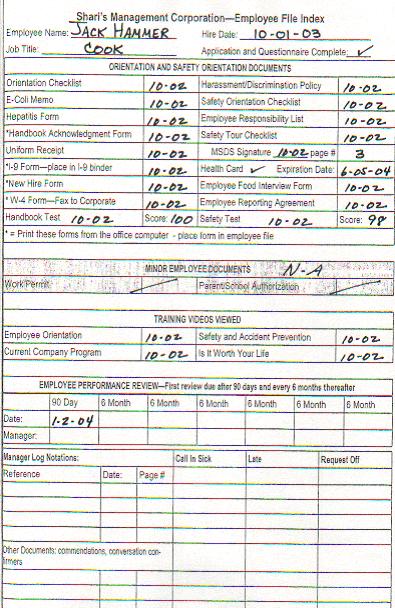 Shari's Management Corporation—Employee File Index
Employee Name: JACK HAMMER Hire Date: 10-01-03
Job Title: COOK Application and Questionnaire Complete: ✓
ORIENTATION AND SAFETY ORIENTATION DOCUMENTS
Orientation Checklist 10-02 Harassment/Discrimination Policy 10-02
E-Coli Memo 10-02 Safety Orientation Checklist 10-02
Hepatitis Form 10-02 Employee Responsibility List 10-02
*Handbook Acknowledgment Form 10-02 Safety Tour Checklist 10-02
Uniform Receipt 10-02 MSDS Signature 10-02 page # 3
*I-9 Form—place in I-9 binder 10-02 Health Card ✓ Expiration Date: 6-05-04
*New Hire Form 10-02 Employee Food Interview Form 10-02
* W-4 Form—Fax to Corporate 10-02 Employee Reporting Agreement 10-02
Handbook Test 10-02 Score: 100 Safety Test 10-02 Score: 98
* = Print these forms from the office computer - place form in employee file
MINOR EMPLOYEE DOCUMENTS N-A
Work Permit Parent/School Authorization
TRAINING VIDEOS VIEWED
Employee Orientation 10-02 Safety and Accident Prevention 10-02
Current Company Program 10-02 Is It Worth Your Life 10-02
EMPLOYEE PERFORMANCE REVIEW—First review due after 90 days and every 6 months thereafter
90 Day 6 Month 6 Month 6 Month 6 Month 6 Month
Date: 1-2-04
Manager:
Manager Log Notations: Call In Sick Late Request Off
Reference Date: Page #
Other Documents: commendations, conversation con-
firmers